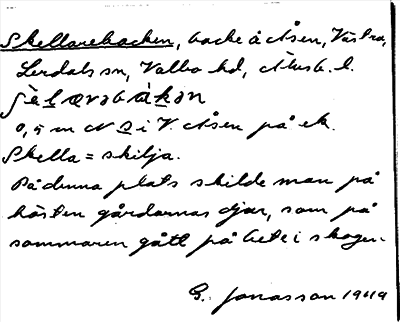 Skellarebacken, backe å Åsen, Västra,
Lerdals sn, Valbo hd, Älvsb. l.
0,5 m N Ö i V. Åsen på ek.
Skella = skilja.
På denna plats skilde man på
hösten gårdarnas djur, som på
sommaren gått på bete i skogen.
G. Jonasson 1949